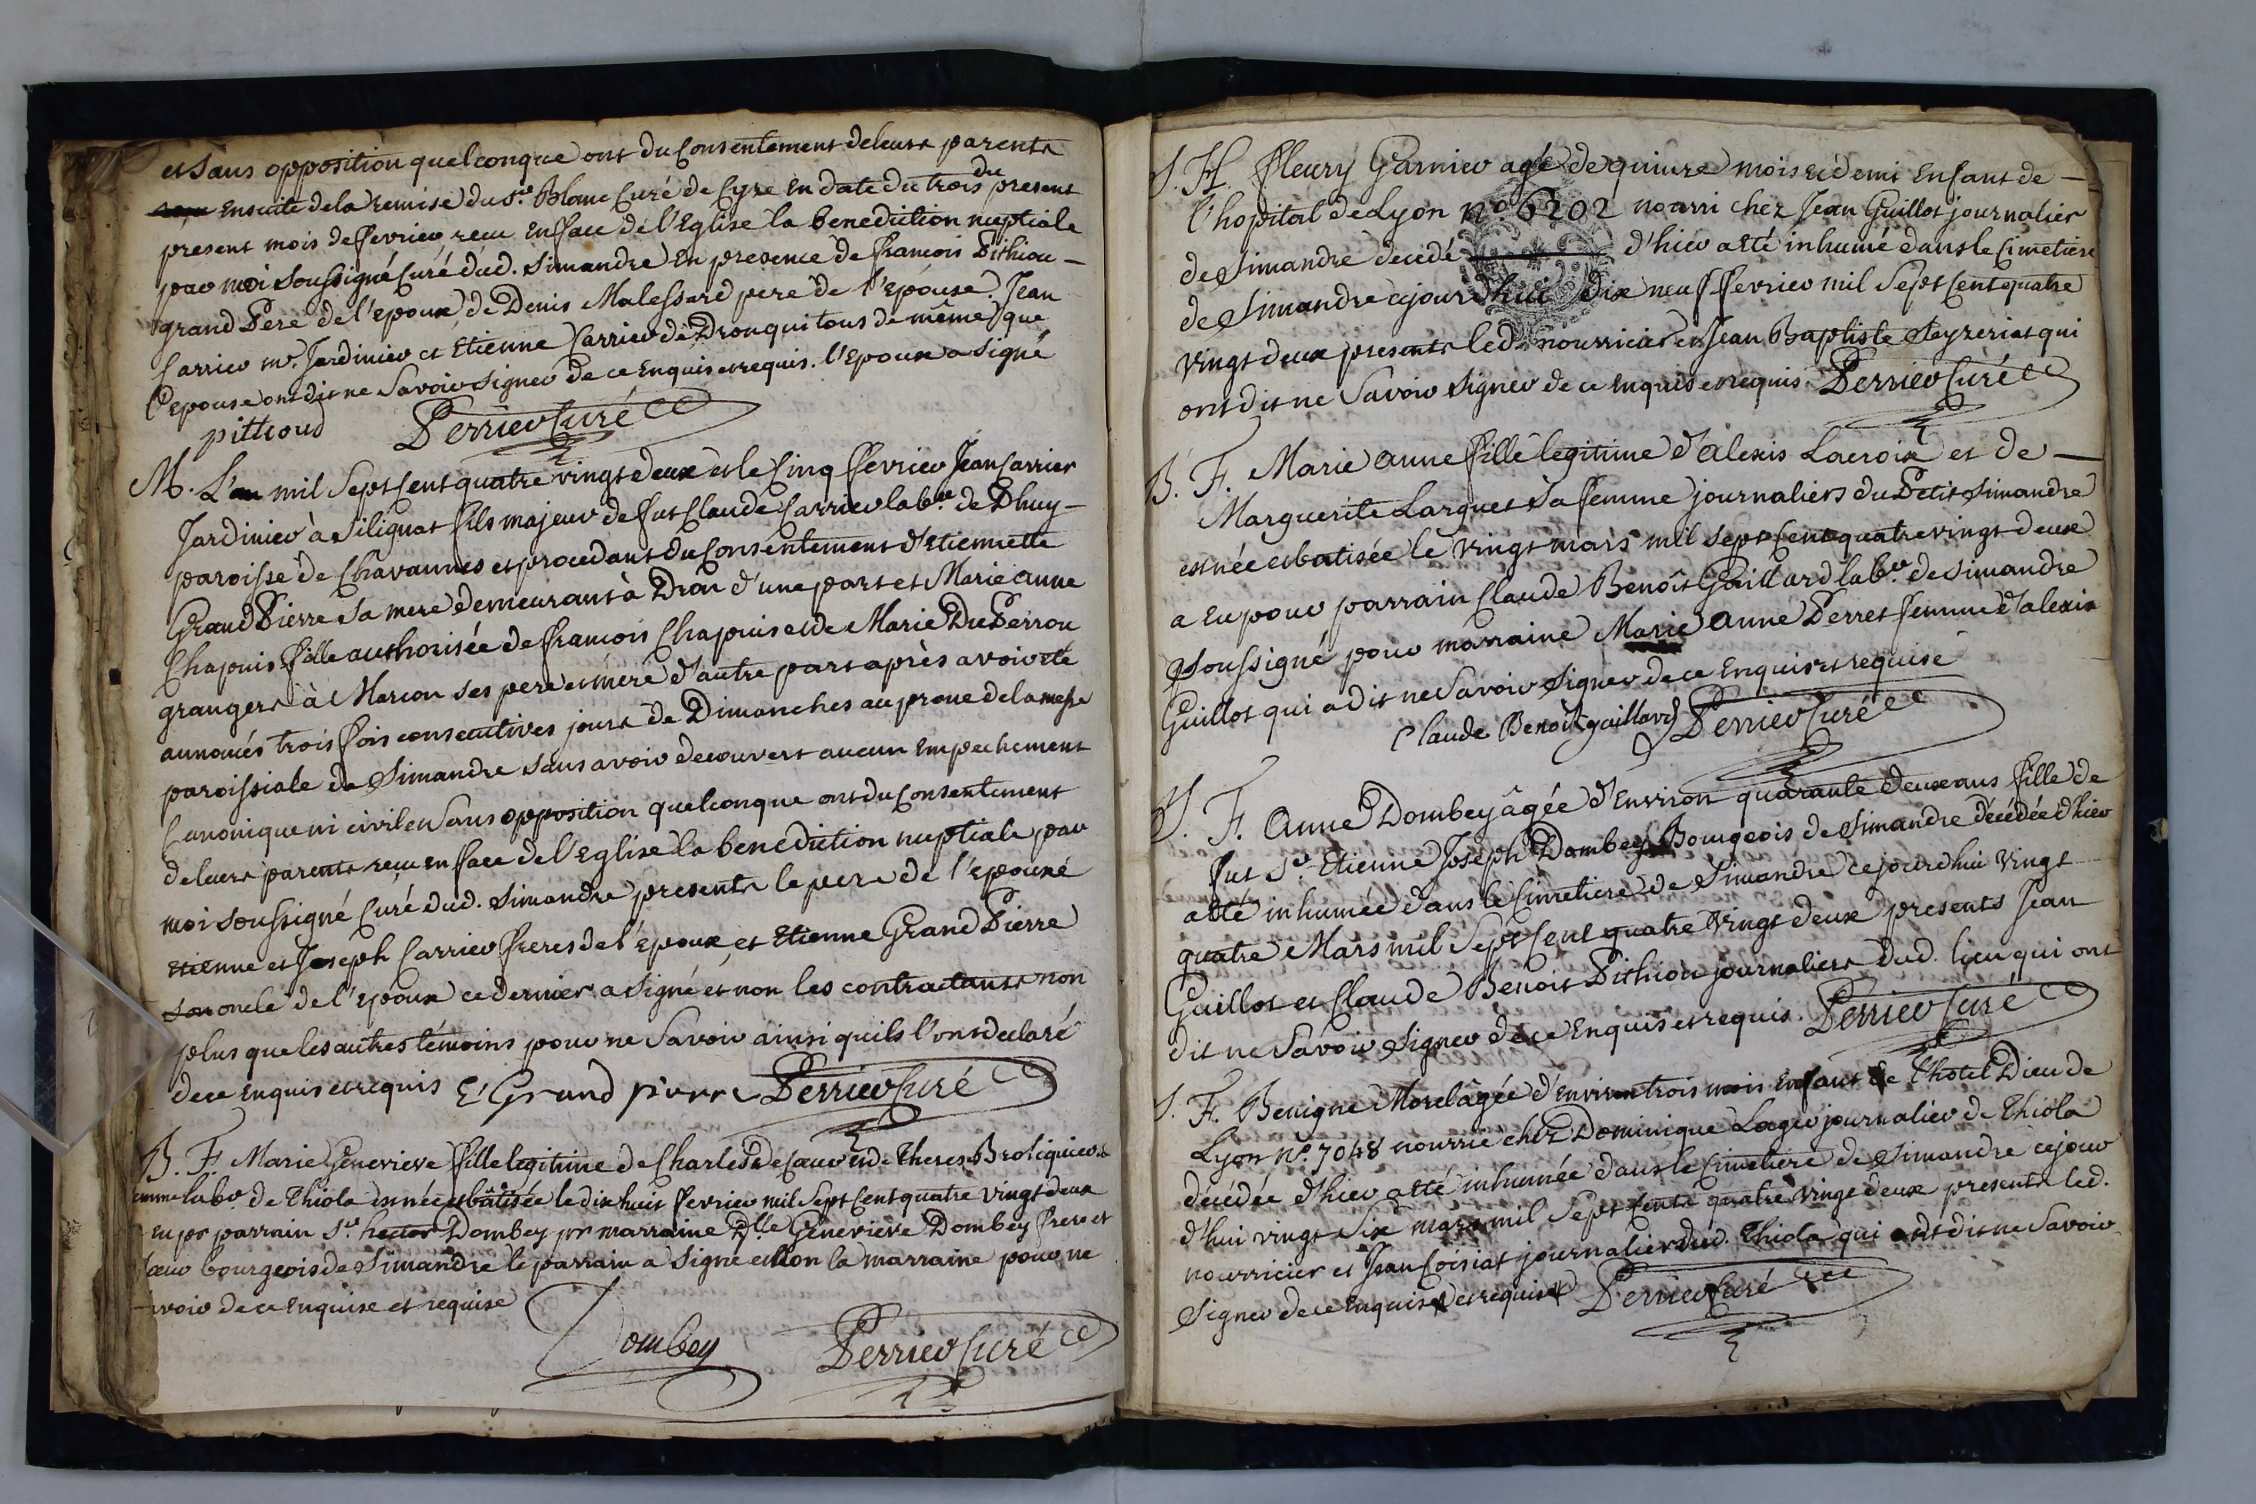 et sans opposition quelconque ont du Consentement de leurs parents
ensuite de la remise du Sr. Blanc Curé de Cyze en date du trois du present
present mois de fevrier, recu en face de l'Eglise la benediction nuptiale
par moi soussigné Curé dud. Simandre en presence de francois Pithiou –
grand Pere de l'epoux de Denis Malessard pere de l'epouse. Jean
Carrier me. Jardinier et Etienne Carrier de Dron qui tous de même que
l'epouse ont dit ne Savoir signer de ce enquis et requis. l'Epoux a signé
pithoud Perrier Curé
M. L'an mil Sept Cent quatre vingt deux et le Cinq fevrier Jean Carrier
Jardinier à Silignat fils majeur de fut Claude Carrier labr. de Dhuy –
paroisse de Chavannes et procedant du Consentement d'Etiennette
Grand Pierre Sa mere demeurant à Dron d'une part et Marie anne
Chapuis fille authorisée de francois Chapuis et de Marie Du Perron
grangers à Marcon ses pere et mere d'autre part après avoir eté
annoncés trois fois consecutives jours de Dimanches au prone de la messe
paroissiale de Simandre sans avoir decouvert aucun empechement
Canonique ni civil et Sans opposition quelconque ont du Consentement
de leurs parents recu en face de l'Eglise la benediction nuptiale par
moi soussigné Curé dud. Simandre presents le pere de l'epouse
Etienne et Joseph Carrier freres de l'epoux, et Etienne Grand Pierre
son oncle de l'epoux ce dernier a signé et non les contractants non
plus que les autres témoins pour ne Savoir ainsi quils l'ont declaré
de ce enquis et requis E. Grand pierre Perrier Curé
B. F. Marie Genevieve fille legitime de Charles Decauv et de Therese Brotiquier sa
emme labr. de Thiola est née et bâtisée le dix huit fevrier mil Sept Cent quatre vingt deux
eu pr parrain Sr. hector Dombey pr marraine Dlle Genevieve Dombey frere et
Sœur bourgeois de Simandre le parrain a Signé et non la marraine pour ne
avoir de ce enquise et requise
Dombey Perrier Curé
S. H. fleury Garnier agé de quinze mois et demi Enfant de –
l'hopital de Lyon no. 6202 nourri chez Jean Guillot journalier
de Simandre decedé d'hier a été inhumé dans le Cimetiere
de Simandre cejourd'hui dix neuf fevrier mil Sept Cent quatre
vingt deux presents led. nourricier et Jean Baptiste Seyzeriat qui
ont dit ne Savoir signer de ce enquis et requis. Perrier Curé
B. F. Marie anne fille legitime d'alexis Lacroix et de –
Marguerite Larguet Sa femme journaliers du Petit Simandre
est née et batisée le vingt mars mil sept Cent quatre vingt deux
a eu pour parrain Claude Benoît Gaillard labr. de Simandre
soussigné pour marraine Marie anne Perret femme d'alexis
Guillot qui a dit ne Savoir signer de ce enquise et requise
Claude Benoît gaillard Perrier Curé
S. F. Anne Dombey âgée d'environ quarante deux ans fille de
fut Sr. Etienne Joseph Dombey Bourgeois de Simandre décédée d'hier
a été inhumée dans le Cimetiere de Simandre cejourdhui vingt
quatre Mars mil Sept Cent quatre vingt deux presents Jean
Guillot et Claude Benoit Pithiou journaliers dud. lieu qui ont
dit ne Savoir signer de ce enquis et requis. Perrier Curé
S. F. Benigne Morel âgée d'environ trois mois Enfant de l'hotel Dieu de
Lyon No. 7048 nourrie chez Dominique Lager journalier de Thiola
decédée d'hier a été inhumée dans le Cimetiere de Simandre cejour
d'hui vingt Six mars mil Sept Cents quatre vingt deux presents led.
nourricier et Jean Coisiat journalier dud. Thiola qui ont dit ne Savoir
Signer de ce enquis et requis Perrier Curé